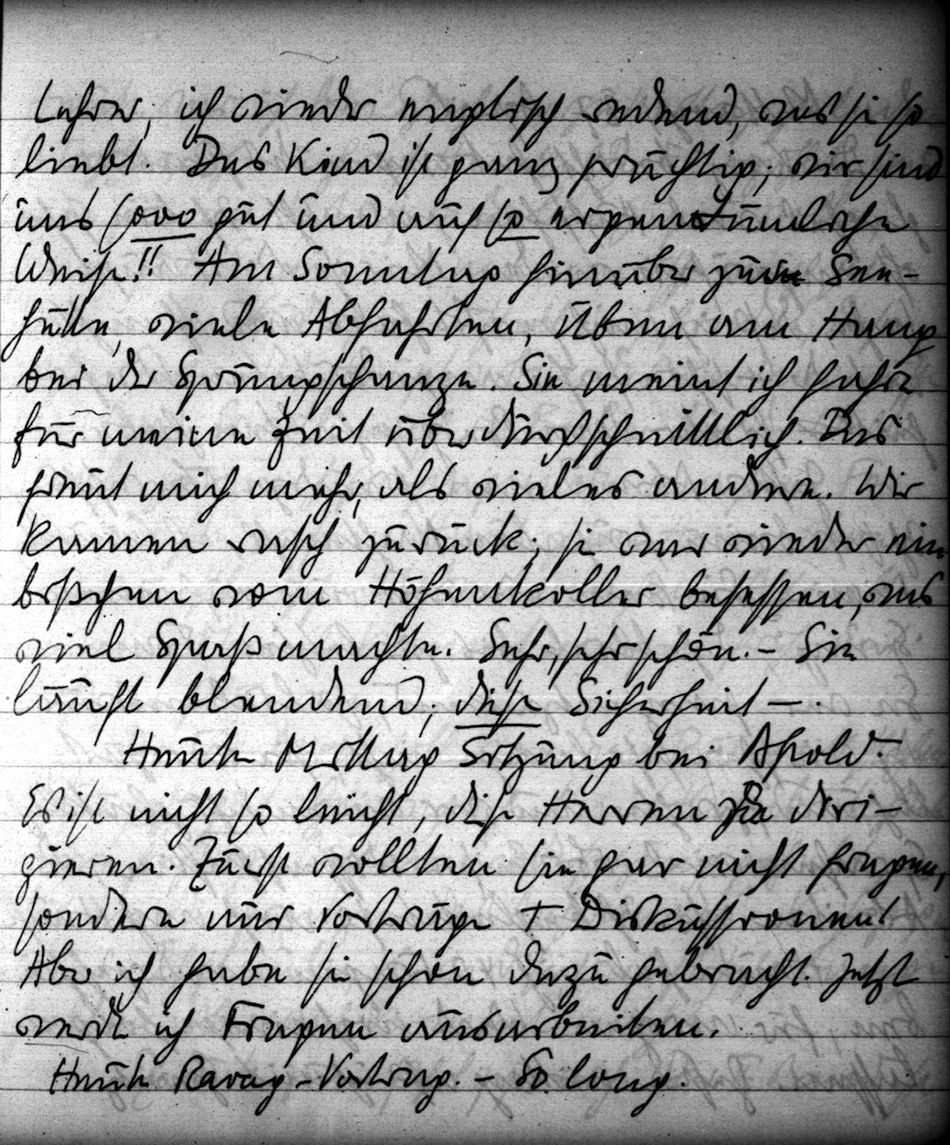 Lehrer, ich wieder englisch redend, was sie so
liebt. Das Kind ist ganz prächtig; wir sind
uns sooo gut und auf so eigentümliche
Weise!! Am Sonntag hinüber zum See-
, viele Abfahrten, Üben am Hang
bei der Sprungschanze. Sie meint ich fahre
für meine Zeit überdurchschnittlich. Das
freut mich mehr, als vieles andere. Wir
kamen rasch zurück; sie war wieder ein
bißchen vom Höhenkoller besessen, was
viel Spaß machte. Sehr, sehr schön. – Sie
läuft blendend; diese Sicherheit –.
Heute Mittag Sitzung bei Apold.
Es ist nicht so leicht, diese Herren zu diri-
gieren. Zuerst wollten sie gar nicht fragen,
sondern nur Vorträge + Diskussionen!
Aber ich habe sie schon dazu gebracht. Jetzt
werde ich Fragen ausarbeiten.
Heute Ravag-Vortrag. – So long.